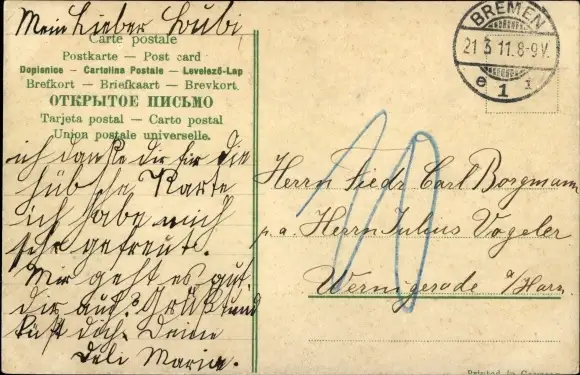 Mein Lieber Bubi,
Carte postale
Postkarte — Post card
Dopisnice — Cartolina Postale — Levelező-Lap
Brefkort — Briefkaart — Brevkort.
ОТКРЫТОЕ ПИСЬМО
Tarjeta postal — Carto postal
Union postale universelle.
ich danke dir für die
hübsche Karte
ich habe mich
sehr gefreut.
Mir geht es gut,
dir auch? Grüßt und
küßt dich Deine
Deli Marie.
BREMEN
21 3 11.8-9V.
e 1 i
10
Herrn Fredr Carl Borgmann
p. a. Herrn Julius Vogeler
Wernigerode a/Harz
Printed in